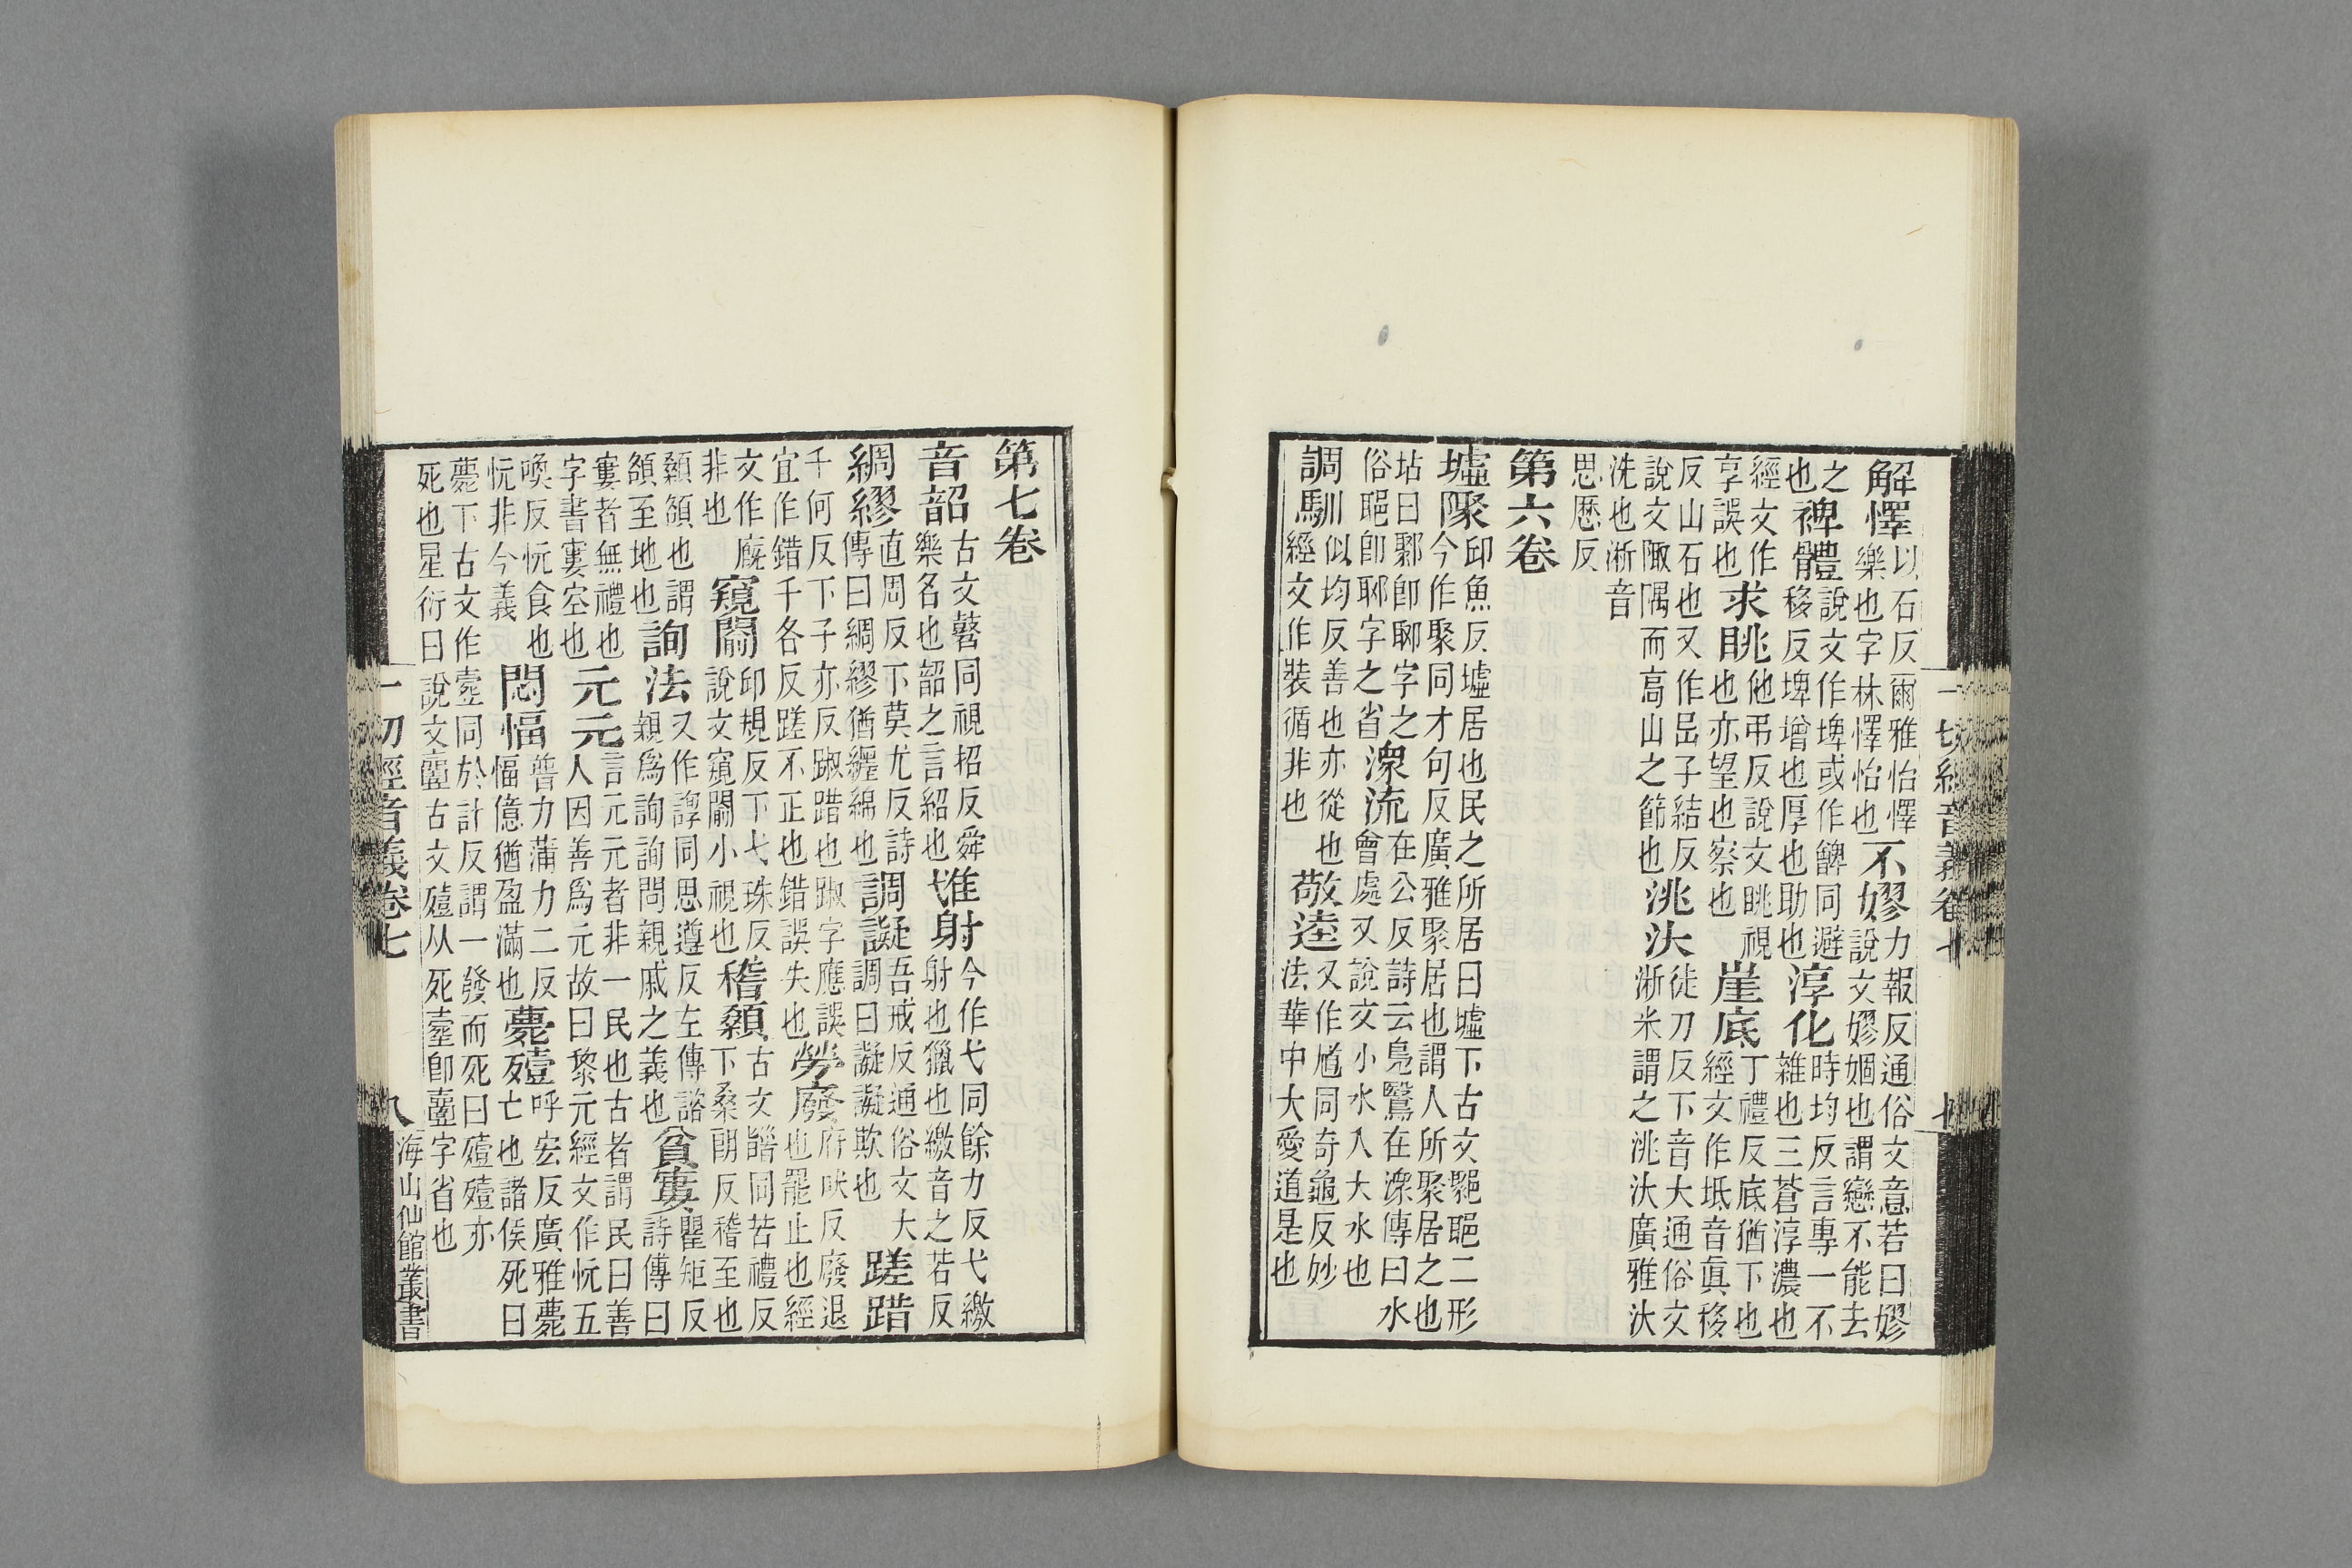 一切經音義卷七
解懌以石反爾雅怡懌樂也字林懌怡也不嫪力報反通俗文意若曰嫪說文嫪婟也謂戀不能去
之也裨體說文作埤或作髀同避移反埤增也厚也助也淳化時均反言專一不雜也三蒼淳濃也
經文作享誤也求眺他弔反說文眺視也亦望也察也崖底丁禮反底猶下也經文作坻音眞移
反山石也又作岊子結反說文陬隅而高山之節也洮汏徒刀反下音大通俗文淅米謂之洮汏廣雅汏
洗也淅音思歷反
第六卷
墟聚邱魚反墟居也民之所居曰墟下古文二形今作聚同才句反廣雅聚居也謂人所聚居之也
坫曰鄹卽聊字之俗卽聊字之省潨流在公反詩云鳧鷖在潨傳曰水會處又說文小水入大水也
調馴似均反善也亦從也經文作裝循非也敬逵又作馗同奇龜反妙法華中大愛道是也
第七卷
音韶古文同視招反舜樂名也韶之言紹也隿射今作弋同餘力反弋繳射也獵也繳音之若反
綢繆直周反下莫尤反詩傳曰綢繆猶纏綿也調譺吾戒反通俗文大調曰譺譺欺也蹉踖
千何反下子亦反踧踖也踧字應誤宜作錯千各反蹉不正也錯誤失也勞廢府吠反廢退也罷止也經
文作廐非也窺闚邱規反下弋珠反說文窺闚小視也稽顙古文同苦禮反下桑朗反稽至也
顙額也謂額至地也詢法又作諄同思遵反左傳諮親爲詢詢問親戚之義也貧窶瞿矩反詩傳曰
窶者無禮也字書窶空也元元言元元者非一民也古者謂民曰善人因善爲元故曰黎元經文作忨五
喚反忨食也忨非今義悶愊普力蒲力二反愊億猶盈滿也薨殪呼宏反廣雅薨亡也諸侯死曰
薨下古文作同於計反謂一發而死曰殪殪亦死也星衍曰說文古文殪从死卽字省也
一切經音義卷七 八 海山仙館叢書